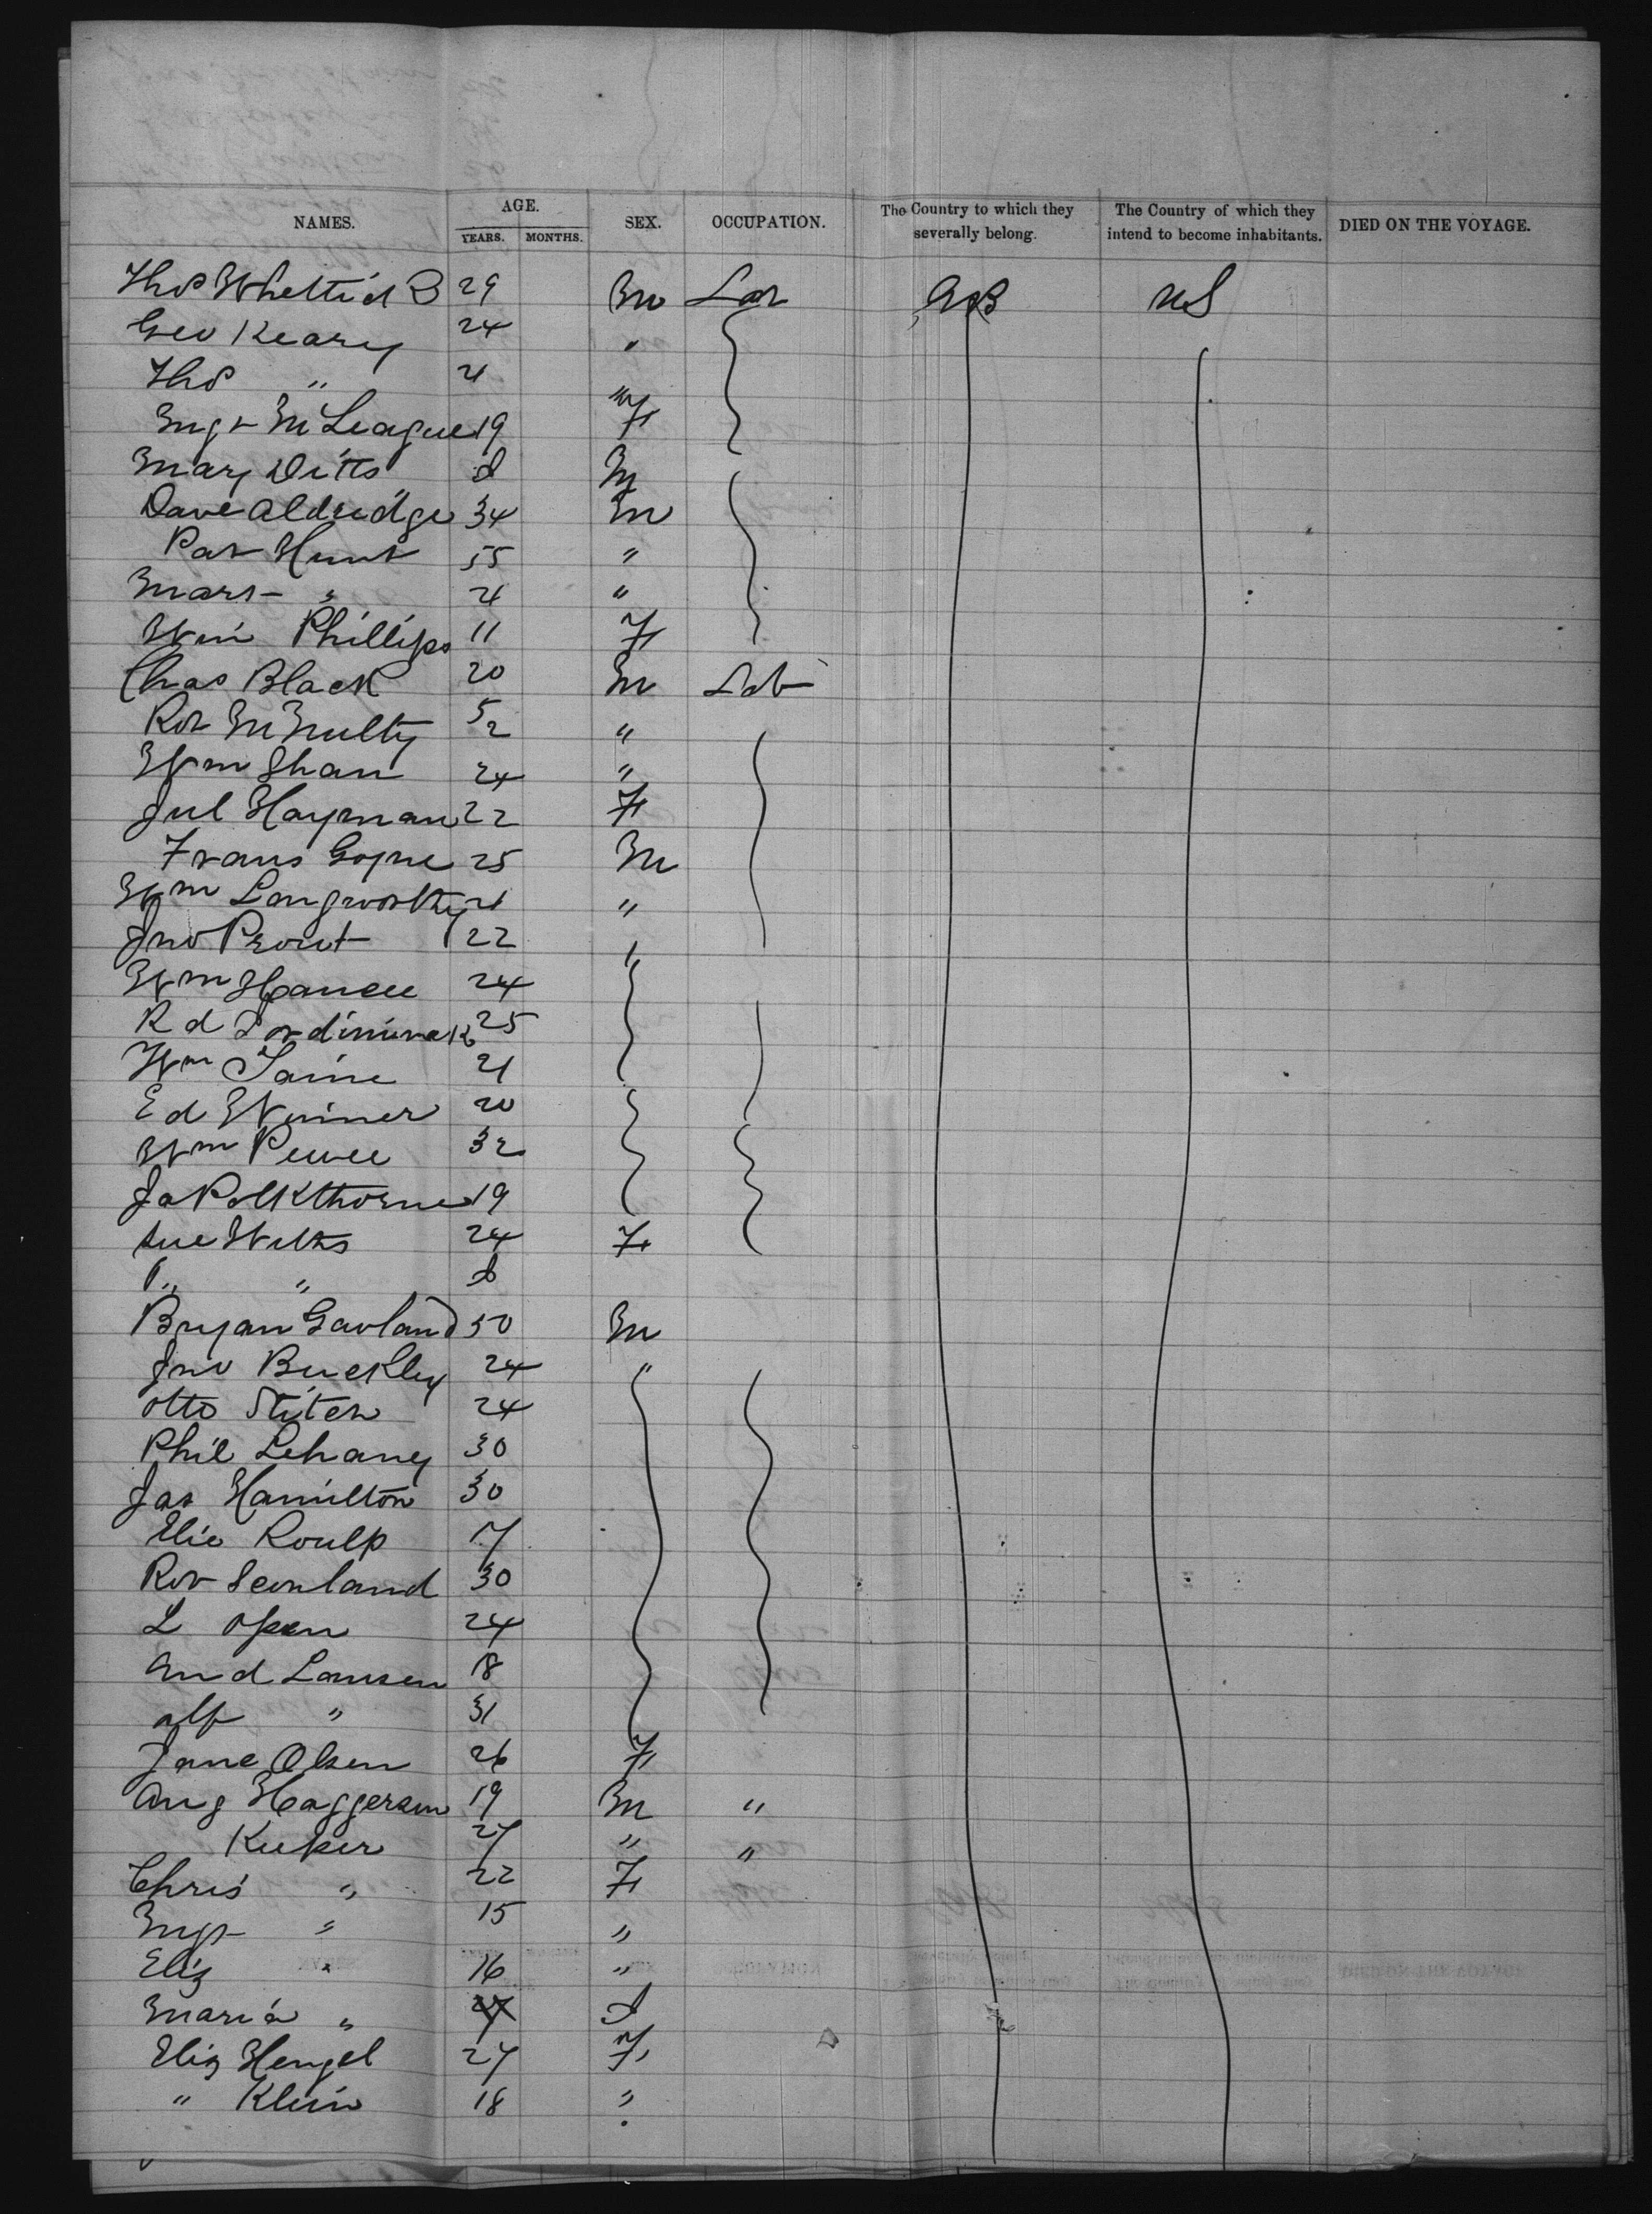 NAMES. AGE. SEX. OCCUPATION. The Country to which they severally belong. The Country of which they intend to become inhabitants. DIED ON THE VOYAGE.
YEARS. MONTHS.
Thos 29 M Lab GB US
Geo Keary 24 "
Thos " 21 "
Mgt McLeague 19 F
Mary Ditts
Dave Aldridge 34 M
Pat Hunt 55 "
Mart " 21 "
Win Phillips 11 F
Chas Black 20 M Lab
Rob McNulty 52 "
Wm Shan 24 "
Jul Hayman 22 F
Frans Goyne 25 M
Wm Langworthy 21 "
Jno Prout 22 "
Wm 24
Rd 25
Wm Jaine 21
Ed 20
Wm 32
Ja Polkthorne 19
Sue Wilks 24 F
" "
Bryan Garland 50 M
Jno Buckley 24 "
Otto Stiten 24
Phil Lehany 30
Jas Hamilton 30
Elie Roulp 17
Rob 30
L Open 24
And Lamsen 18
Alf " 31
Jane Olsen 26 F
Aug Haggersen 19 M "
Keeper 27 " "
Chris " 22 F
Mgt " 15 "
Eliz " 16 "
Maria "
Eliz Hengel 27 F
" Klein 18 "